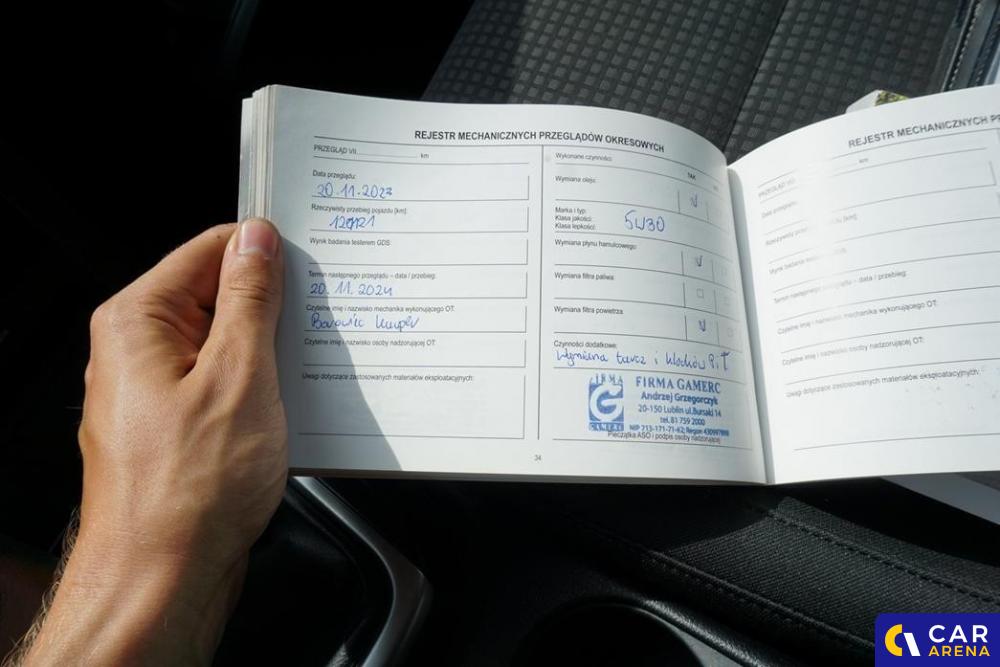 REJESTR MECHANICZNYCH PRZEGLĄDÓW OKRESOWYCH
PRZEGLĄD VII km
Data przeglądu:
20.11.2023
Rzeczywisty przebieg pojazdu [km]:
Wynik badania testerem GDS
Termin następnego przeglądu – data / przebieg:
20.11.2024
Czytelne imię i nazwisko mechanika wykonującego OT:
Borowiec
Czytelne imię i nazwisko osoby nadzorującej OT:
Uwagi dotyczące zastosowanych materiałów eksploatacyjnych:
Wykonane czynności:
TAK
Wymiana oleju:
Marka i typ:
Klasa jakości:
Klasa lepkości:
5W30
Wymiana płynu hamulcowego:
Wymiana filtra paliwa:
Wymiana filtra powietrza:
Czynności dodatkowe:
Wymiana tarcz i klocków P i T
FIRMA
G
GAMERC
FIRMA GAMERC
Andrzej Grzegorczyk
20-150 Lublin ul.Bursaki 14
tel. 81 759 2000
NIP 713-171-71-62; Regon
Pieczątka ASO i podpis osoby nadzorującej
34
REJESTR MECHANICZNYCH
PRZEGLĄD VIII km
Data przeglądu:
Rzeczywisty [km]:
Wynik badania
Termin następnego przeglądu – data / przebieg:
Czytelne imię i nazwisko mechanika wykonującego OT:
Czytelne imię i nazwisko osoby nadzorującej OT:
Uwagi dotyczące zastosowanych materiałów eksploatacyjnych:
CAR
ARENA